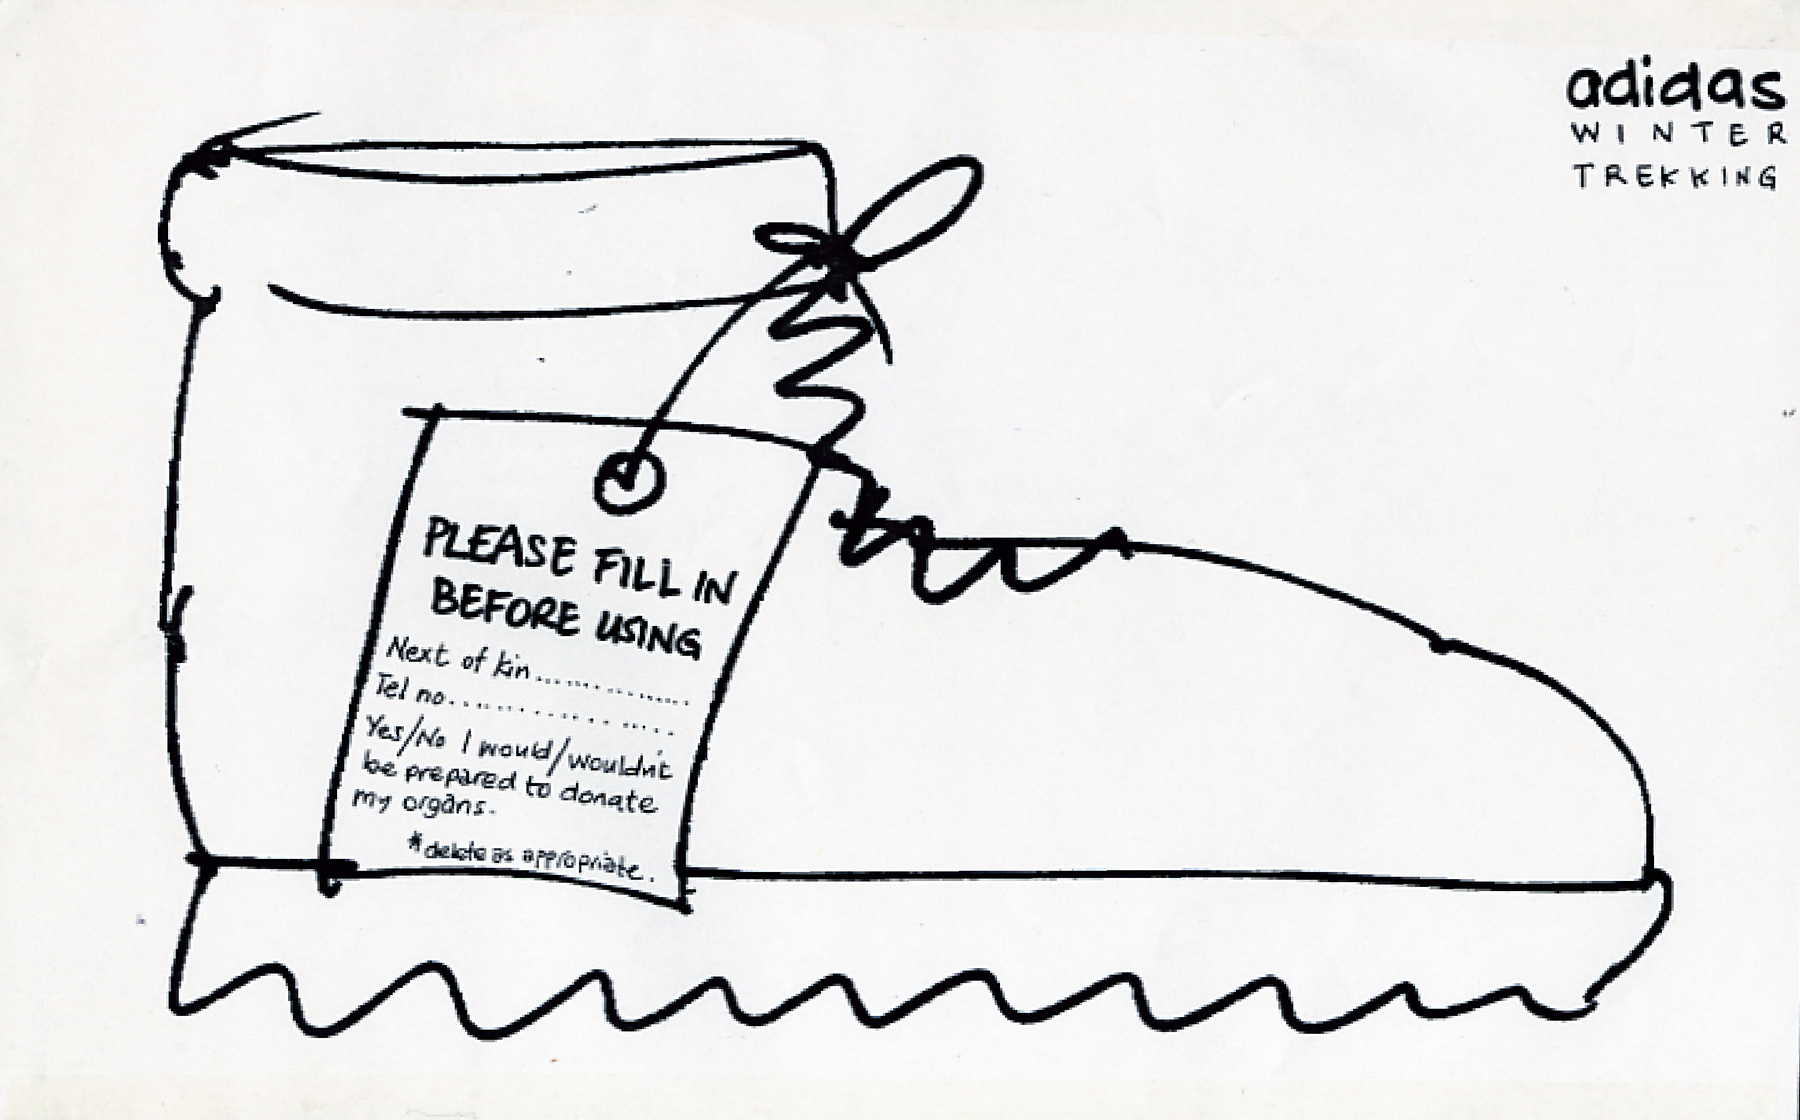 adidas
WINTER
TREKKING
PLEASE FILL IN
BEFORE USING
Next of kin................
Tel no....................
Yes/No I would/wouldn't
be prepared to donate
my organs.
*delete as appropriate.